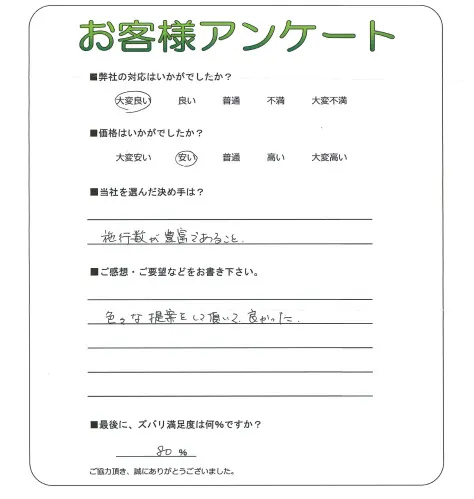 お客様アンケート
■弊社の対応はいかがでしたか?
大変良い 良い 普通 不満 大変不満
■価格はいかがでしたか?
大変安い 安い 普通 高い 大変高い
■当社を選んだ決め手は?
施行数が豊富であること。
■ご感想・ご要望などをお書き下さい。
色々な提案をして頂いて、良かった。
■最後に、ズバリ満足度は何%ですか?
80 %
ご協力頂き、誠にありがとうございました。